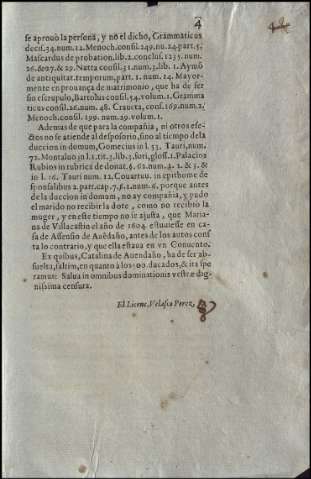 4
se aprouò la persona, y no el dicho, Grammaticus
decis. 34. num. 12. Menoch. consil. 249. nu. 24. part. 5.
Mascardus de probation. lib. 2. conclus. 1235. num.
26. & 27. & 29. Natta consil. 31. num. 5. lib. 1. Aymō
de antiquitat. temporum, part. 1. num. 24. Mayor-
mente en prouança de matrimonio, que ha de ser
sin escrupulo, Bartolus consil. 54. volum. 1. Gramma
ticus consil. 26. num. 48. Craueta, cons. 169. num. 2,
Menoch. consil. 199. num. 29. volum. 1.
Ademas de que para la compañia, ni otros efe-
ctos no se atiende al desposorio, sino al tiempo de la
duccion in domum, Gomecius in l. 53. Tauri, num.
72. Montaluo in l. 1. tit. 3. lib. 3. fori, gloss. 1. Palacios
Rubios in rubrica de donat. §. 62. num. 1. 2. & 3. &
in l. 16. Tauri num. 12. Couarruu. in epithome de
sponsalibus 2. part. cap. 7. §. 1. num. 6. porque antes
de la duccion in domum, no ay compañia, y pudo
el marido no recibir la dote, como no recibio la
muger, y en este tiempo no se ajusta, que Maria-
na de Villacastin el año de 1604 estuuiesse en ca-
sa de Assensio de Auēdaño, antes de los autos cons
ta lo contrario, y que ella estaua en vn Conuento.
Ex quibus, Catalina de Auendaño, ha de ser ab-
suelta, saltim, en quanto à los 500. ducados, & ita spe
ramus: Salua in omnibus dominationis vestræ dig-
nissima censura.
El Licenc. Velasco Perez,